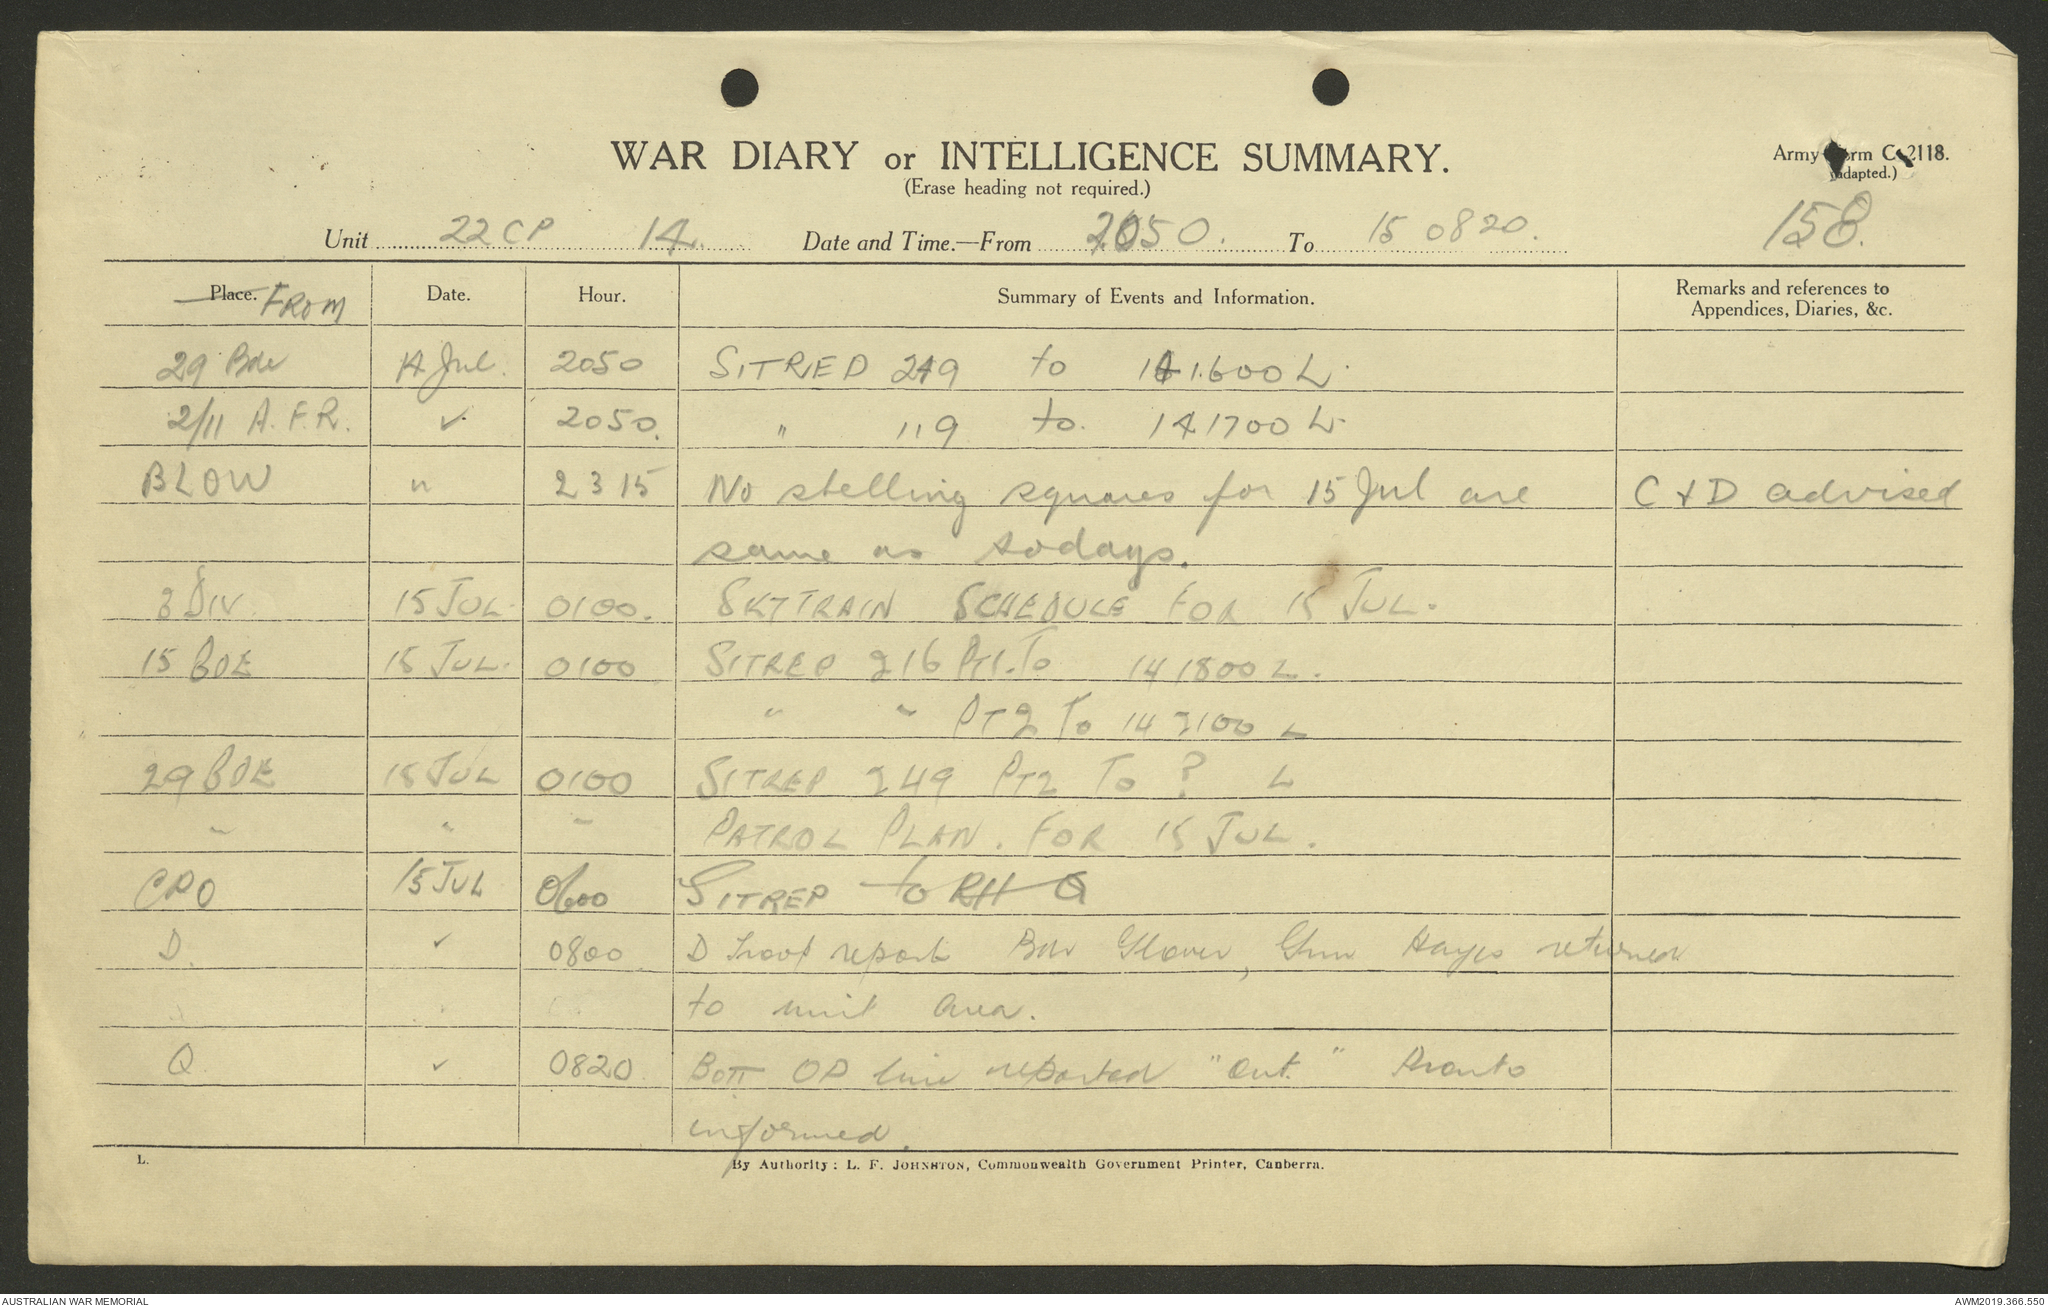 WAR DIARY or INTELLIGENCE SUMMARY.
(Erase heading not required.)
Army Form C. 2118.
(adapted.)
158.
Unit 22 CP 14 Date and Time.—From 2050. To 15 0820.
Place. FROM Date. Hour. Summary of Events and Information. Remarks and references to Appendices, Diaries, &c.
29 Bde 14 Jul. 2050 SITREP 249 to 141600 L.
2/11 A.F.R. " 2050. " 119 to 141700 L.
BLOW " 2315 No shelling squares for 15 Jul are C & D advised
same as todays.
3 DIV. 15 JUL. 0100. SKYTRAIN SCHEDULE FOR 15 JUL.
15 BDE 15 JUL. 0100 SITREP 216 PT1. TO 141800 L.
" " PT2 TO 142100 L
29 BDE 15 JUL 0100 SITREP 249 PT2 TO ? L
" " " PATROL PLAN. FOR 15 JUL.
CPO 15 JUL 0600 SITREP to RHQ
D. " 0800. D Troop report Bdr Glover, Gnr Hayes returned
to unit area.
Q " 0820 BOTT OP line reported "out." Pronto
informed.
L.
By Authority: L. F. JOHNSTON, Commonwealth Government Printer, Canberra.
AUSTRALIAN WAR MEMORIAL
AWM2019.366.550